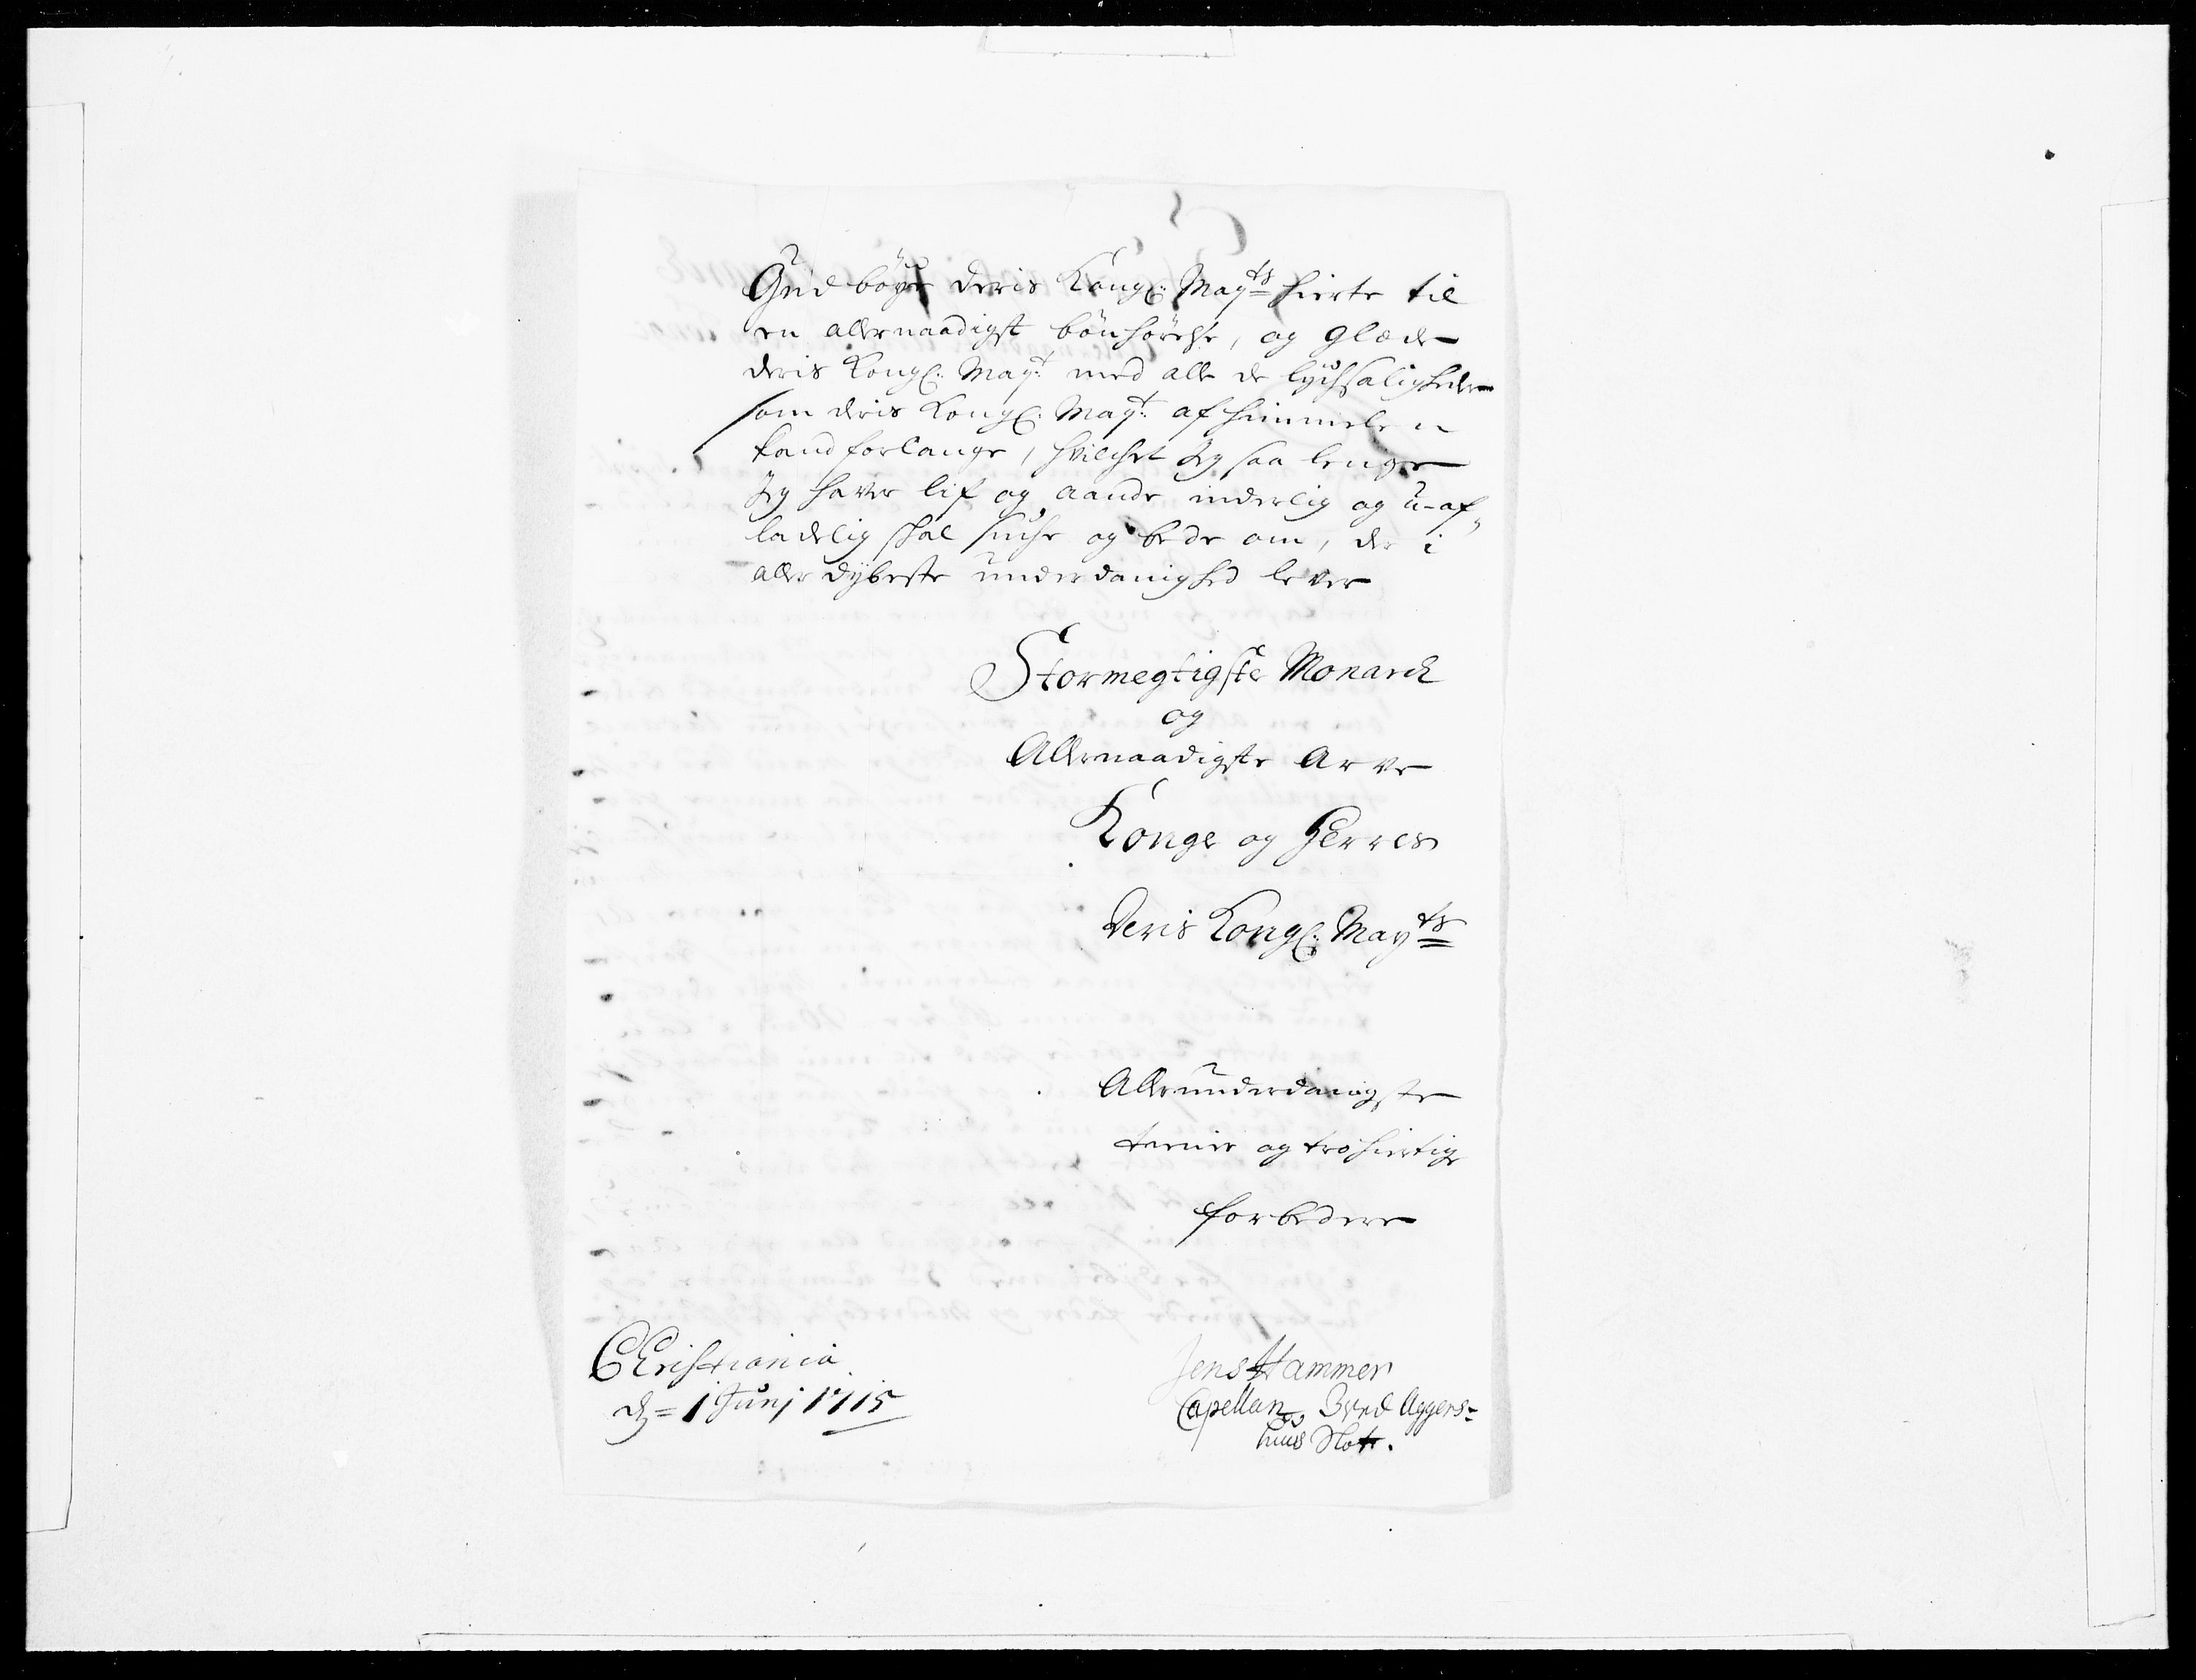 Gud böye deris Kongl: Mayts hierte til
en allernaadigst bönhörelse, og glæde
deris Kongl: Mayt: med alle de lychsaligheder
som deris Kongl: Mayt: af himmelen
kand forlange, hvilchet Jeg saa lenge
Jeg haver lif og aande inderlig og u-af„
ladelig skal suche og bede om, der i
aller dybeste underdanighed lever
Stormegtigste Monarch
og
Allernaadigste Arve
Konge og Herres
Deris Kongl: Mayts
Allerunderdanigste
tienner og trohiertige
forbedere
Christiania
d= 1 Junj 1715
Jens Hammer
Capellan Aggers=
huus Slott.